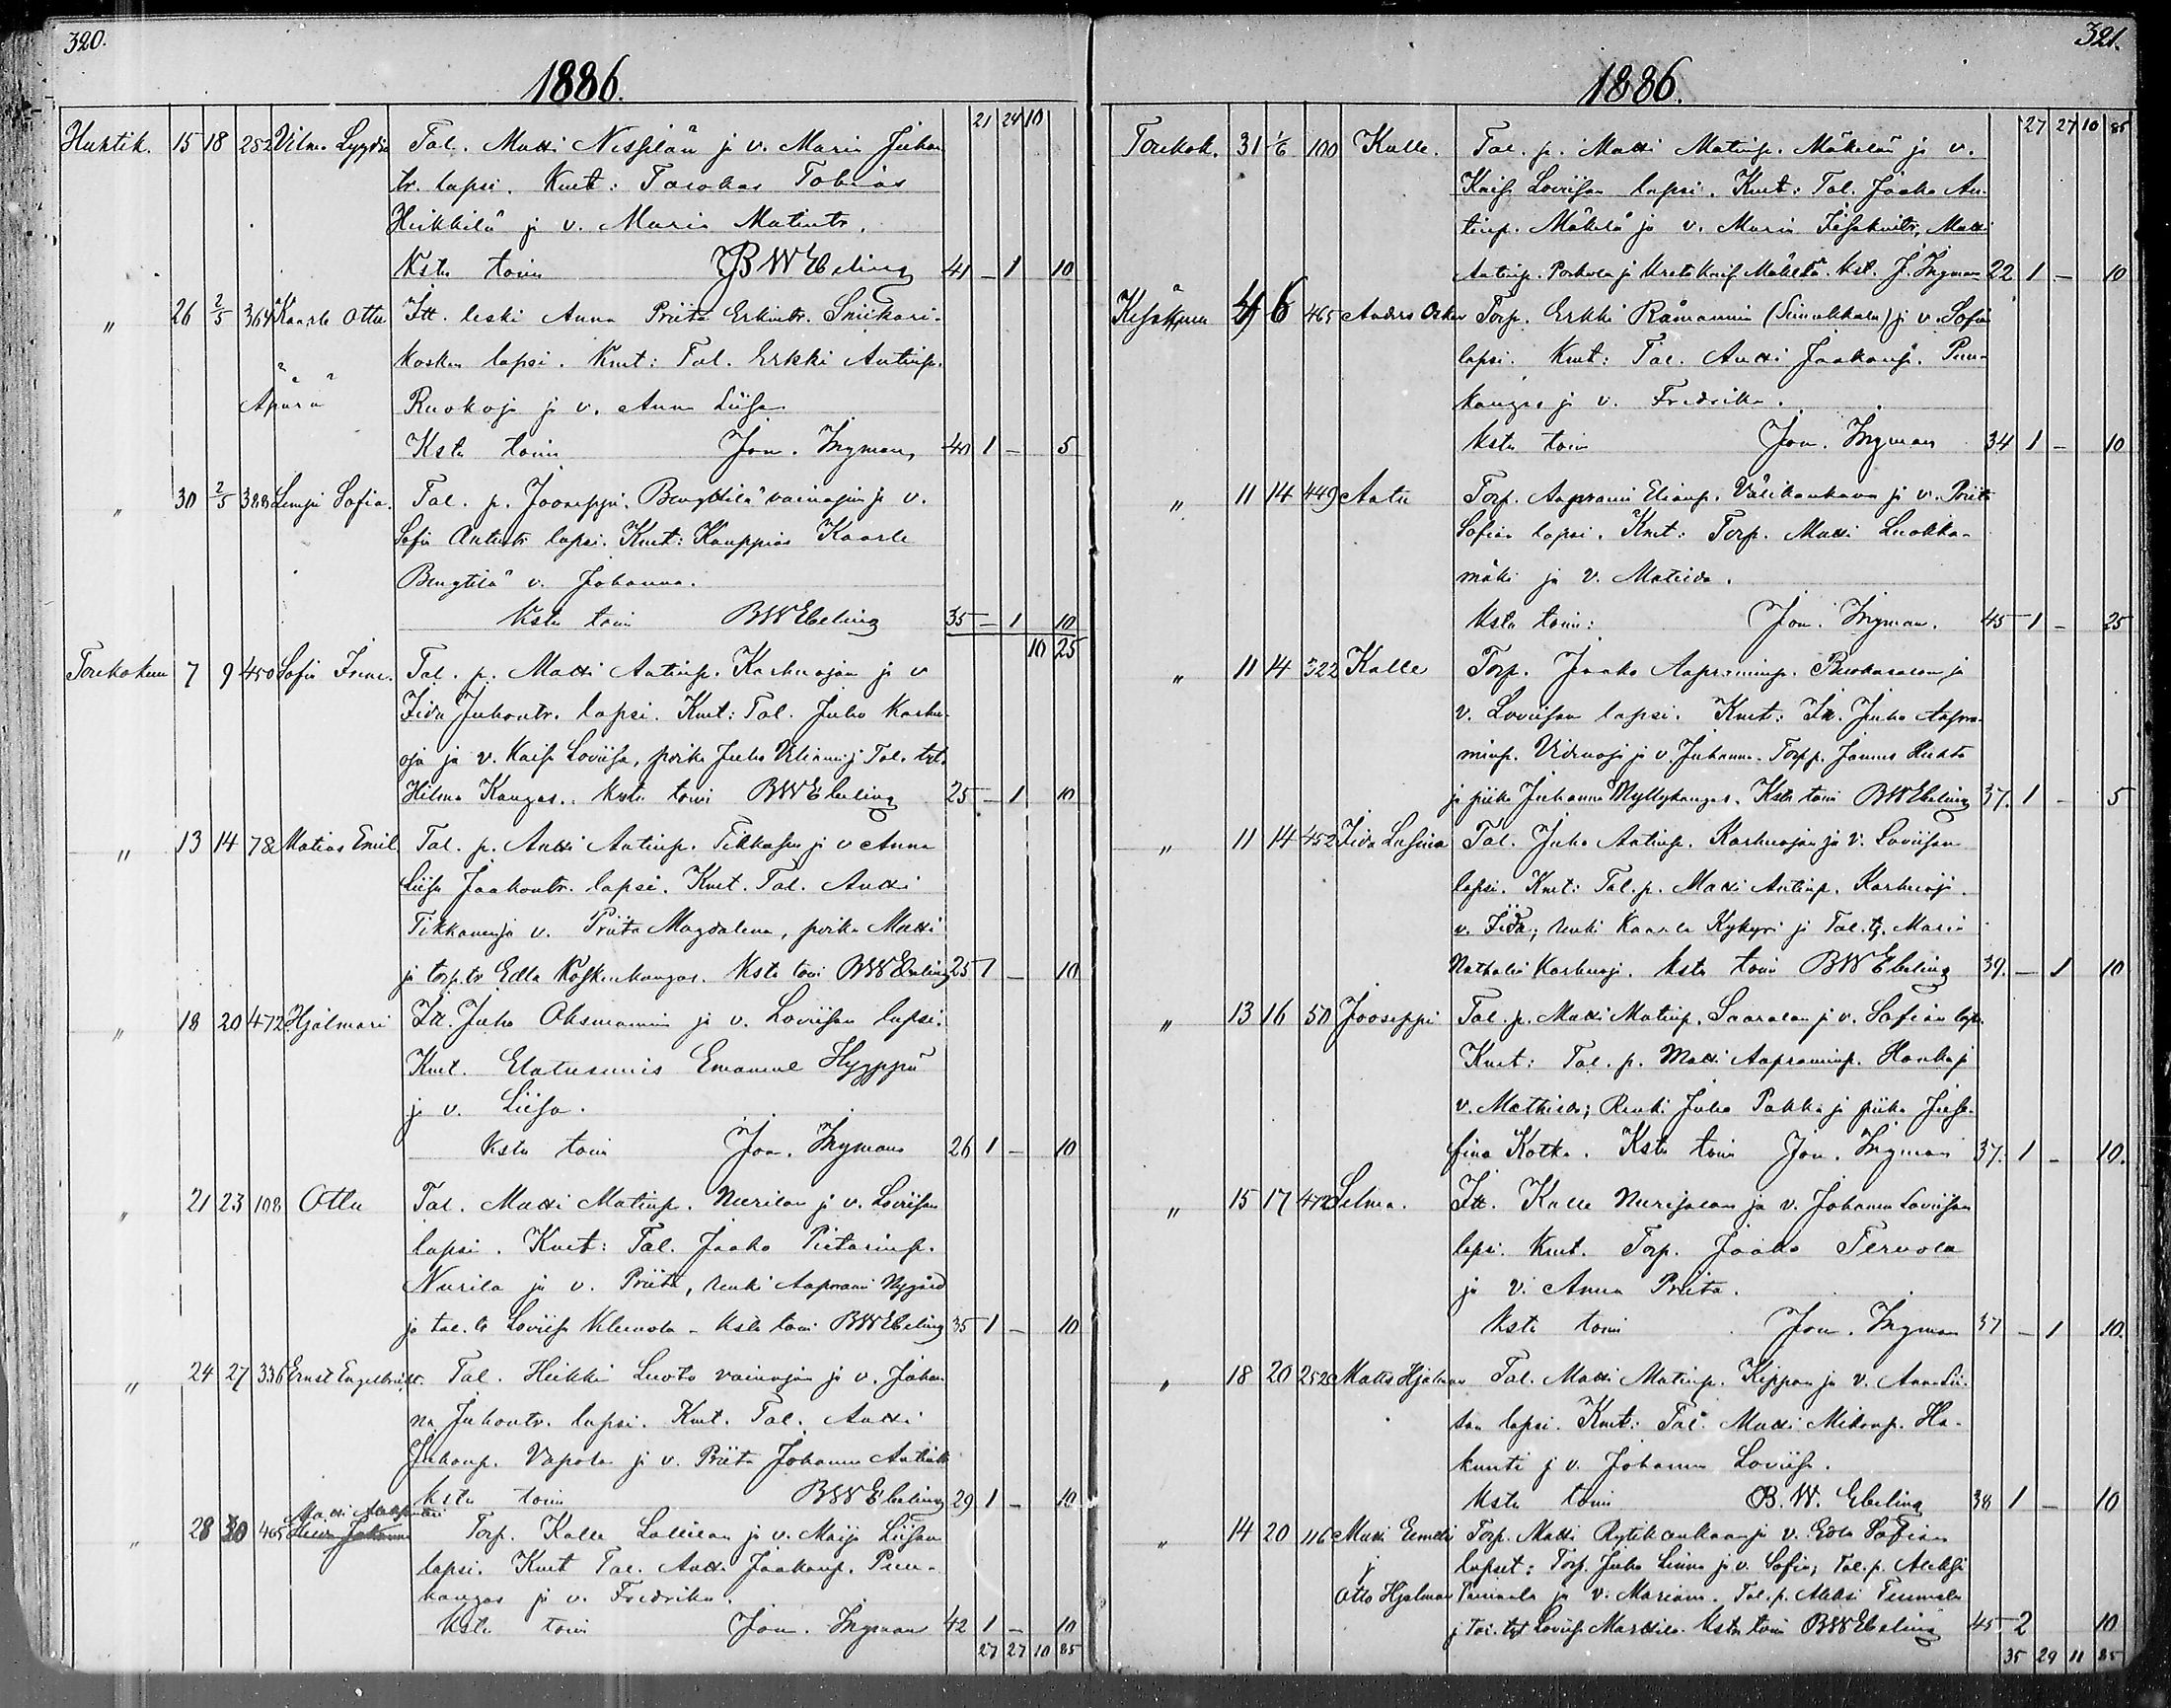 320.
1886.
21 24 10
Huhtik. 15 18 252 Vilma Lyydia Tal. Matti Nissilän ja v. Maria Juhon
tr. lapsi. Kmt: Tobias
Heikkilä ja v. Maria Matintr.
Kste toim BW Ebeling 41 – 1 10
" 26 2/5 364 Kaarle Otto Itt. leski Anna Priita Erkintr.
kosken lapsi. Kmt: Tal. Erkki Antinp.
Äpärä Ruokoja ja v. Anna Liisa
Kste toim Jon. Ingman 40 1 – 5
" 30 2/5 388 Sofia. Tal. p. Jooseppi Bengttilä vainajan ja v.
Sofia Antintr lapsi. Kmt: Kauppias Kaarle
Bengtilä v. Johanna.
Kste toim BW Ebeling 35 – 1 10
10 25
Toukokuu 7 9 450 Sofia Irene. Tal. p. Matti Antinp. Karhuojan ja v
Iida Juhontr. lapsi. Kmt: Tal. Juho Karhu-
oja ja v. Kaisa Loviisa, poika Juho ja Tal. tyt.
Hilma Kangas. Kste toim BW Ebeling 25 – 1 10
" 13 14 78 Matias Emil Tal. p. Antti Antinp. Tikkasen ja v Anna
Liisa Jaakontr. lapsi. Kmt. Tal. Antti
Tikkanen ja v. Priita Magdalena, poika Matti
ja torp. tr Edla Koskenkangas. Kste toim BW Ebeling 25 1 – 10
" 18 20 472 Hjalmari Itt. Juho Oksmannin ja v. Loviisan lapsi.
Kmt. Elatusmies Emanuel Hyyppä
ja v. Liisa.
Kste toim Jon. Ingman 26 1 – 10
" 21 23 108 Otto Tal. Matti Matinp. Nurilan ja v. Loviisan
lapsi. Kmt: Tal. Jaako Pietarinp.
Nurila ja v. Priita, renki Aaprami Nygård
ja tal. tr Loviisa Klemola – Kste toim BW Ebeling 35 1 – 10
" 24 27 336 Ernst Engelbrikt. Tal. Heikki Luoto vainajan ja v. Johan
na Juhontr. lapsi. Kmt. Tal. Antti
Juhonp. Vapola ja v. Priita Johanna Antintr
Kste toim BW Ebeling 29 1 – 10
" 28 30 465 Torp. Kalle ja v. Maija Liisan
lapsi. Kmt Tal. Antti Jaakonp. Puu-
kangas ja v. Fredrika.
Kste toim Jon. Ingman 42 1 – 10
27 27 10 85
321.
1886.
27 27 10 85
Toukok. 31 1/6 100 Kalle. Tal. p. Matti Matinp. Mäkelän ja v.
Kaisa Loviisan lapsi. Kmt: Tal. Jaako An-
tinp. Mäkelä ja v. Maria Iisakintr, Matti
Antinp. Porkola ja Mäkelä. Kst. J. Ingman 22 1 – 10
Kesäkuu 4 6 465 Anders Oskar Torp. Erkki ja v. Sofia
lapsi. Kmt: Tal. Antti Jaakonp. Puu-
kangas ja v. Fredrika.
Kste toim Jon. Ingman 34 1 – 10
" 11 14 449 Aatu Torp. Aaprami Elianp. Välikankaan ja v. Priita
Sofian lapsi. Kmt: Torp. Matti Luokka-
mäki ja v. Matilda.
Kste toim: Jon. Ingman. 45 1 – 25
" 11 14 322 Kalle Torp. Jaako Aapraminp. ja
v. Loviisan lapsi. Kmt: Itt. Juho Aapra-
minp. Viidenoja ja v. Johanna. Torpp. Jannes Huhta
ja piika Johanna Myllykangas. Kste toim BW Ebeling 37. 1 – 5
" 11 14 452 Iida Lusina Tal. Juho Antinp. Karhuojan ja v. Loviisan
lapsi. Kmt: Tal. p. Matti Antinp. Karhuoja
v. Iida; renki Kaarle Kykyri ja Tal. ty. Maria
Nathalia Karhuoja. Kste toim BW Ebeling 39. – 1 10
" 13 16 50 Jooseppi Tal. p. Matti Matinp. Saaralan ja v. Sofian laps.
Kmt: Tal. p. Matti Aapraminp. Hanka ja
v. Mathilda; Renki Juho Pakka ja piika Jose-
fina Kotka. Kste toim Jon. Ingman 37. 1 – 10.
" 15 17 472 Selma. Itt. Kalle ja v. Johanna Loviisan
lapsi. Kmt. Torp. Jaako Tervola
ja v. Anna Priita.
Kste toim Jon. Ingman 37 – 1 10.
" 18 20 252 Matts Hjalmar Tal. Matti Matinp. Kippon ja v. Anna Lii-
san lapsi. Kmt: Tal. Matti Mikonp. Ha-
kunti ja v. Johanna Loviisa.
Kste toim B. W. Ebeling 38 1 – 10
" 14 20 116 Matti Eemeli Torp. Matti Rytikankaan ja v. Edla Sofian
j lapset: Torp. Juho Linna ja v. Sofia; Tal. p. Aleksi
Otto Hjalmar ja v. Mariana. Tal. p. Aleksi
ja Tal. tyt Loviisa Marttila. Kste toim BW Ebeling 45 2 10
35 29 11 85